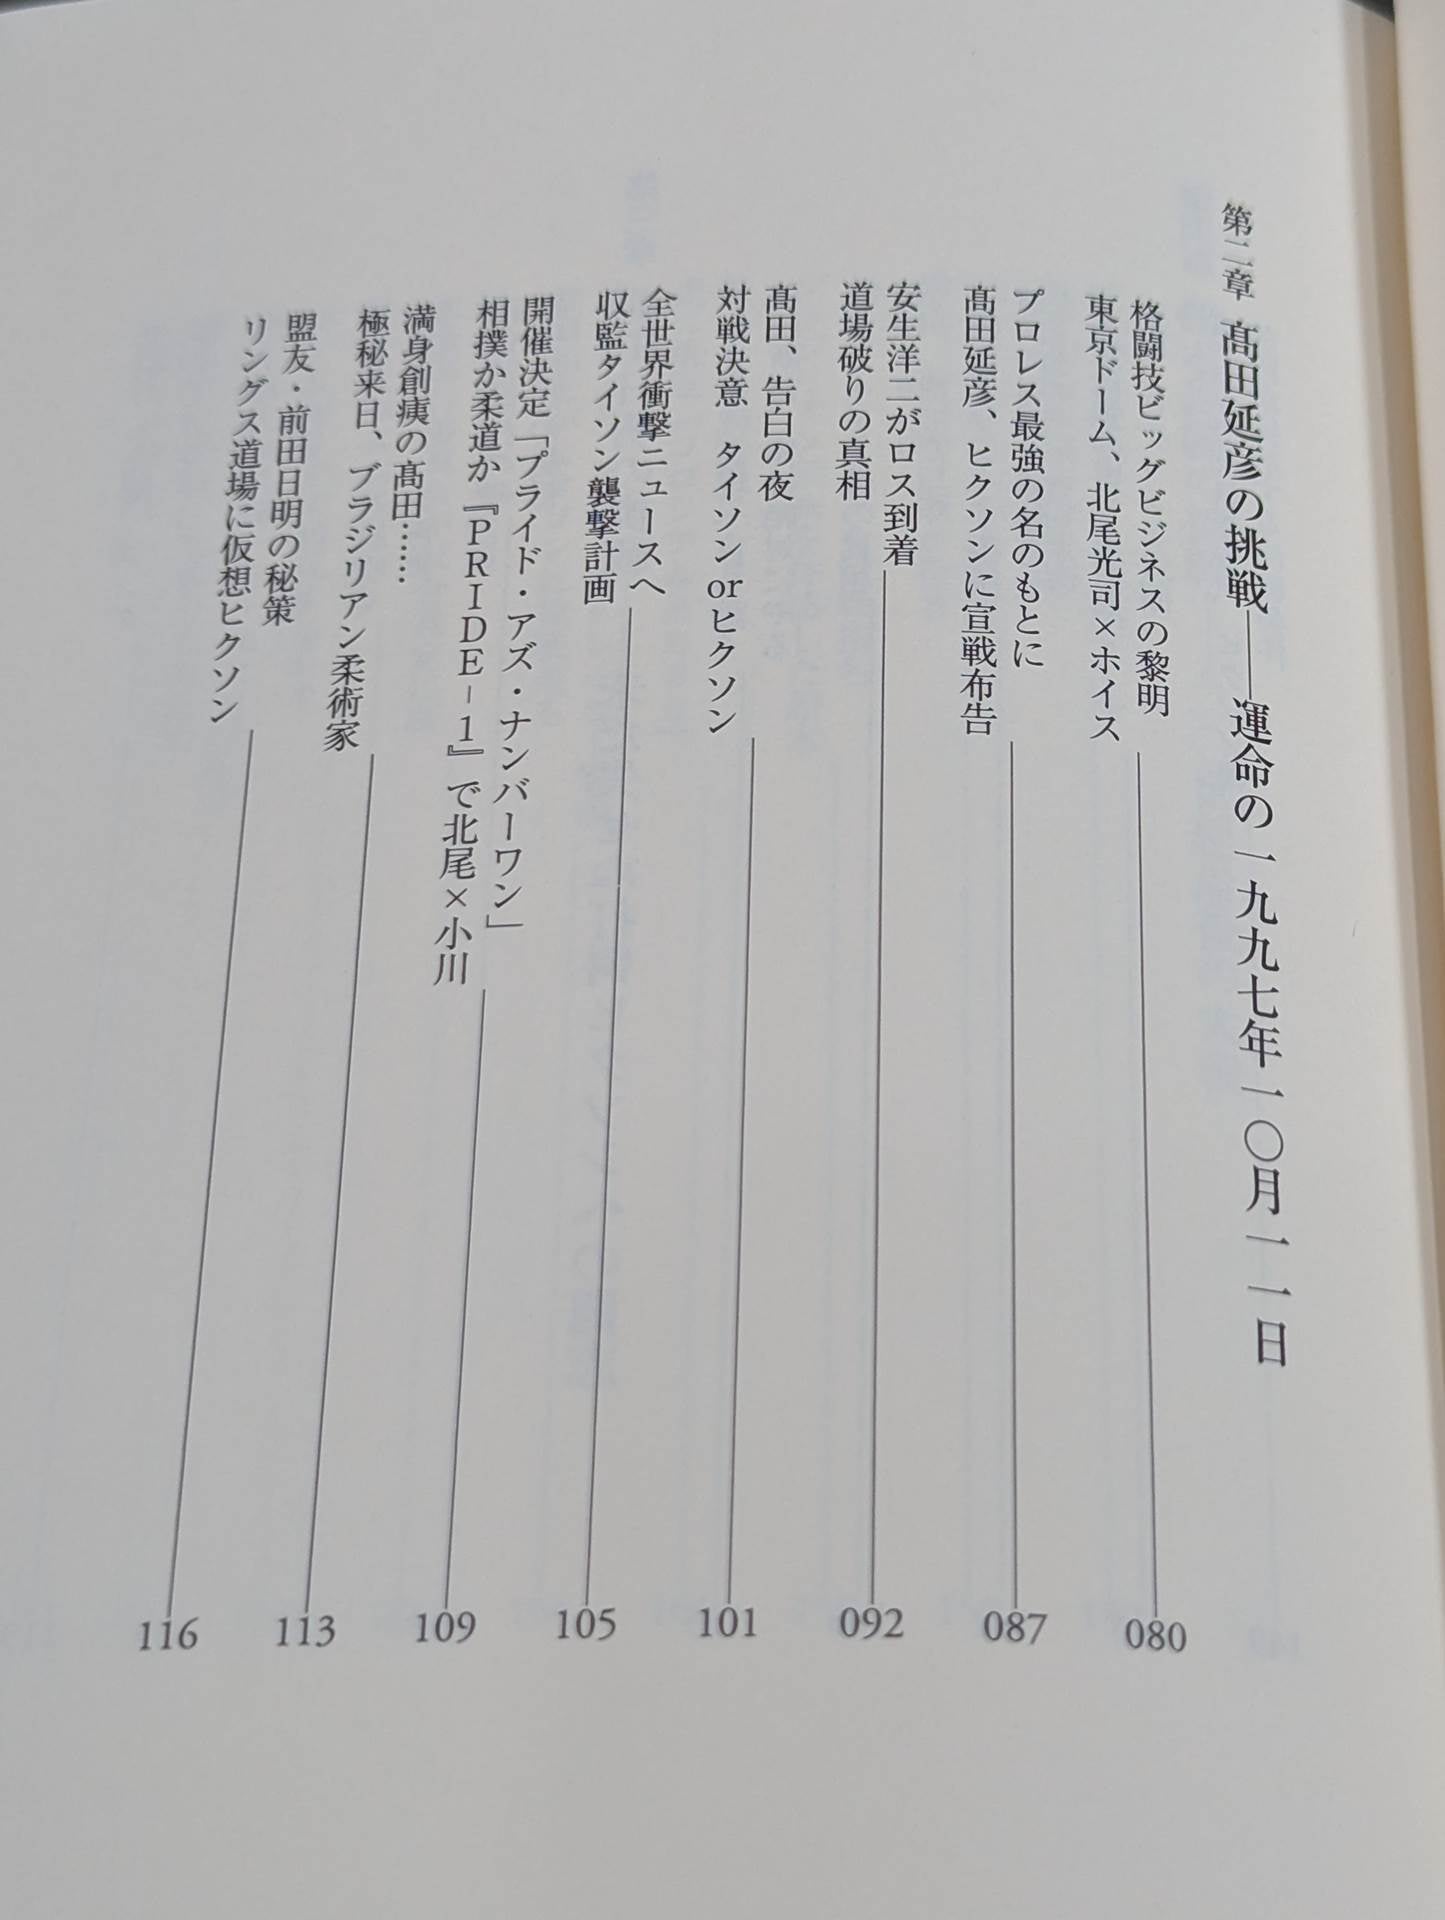 第二章 髙田延彦の挑戦——運命の一九九七年一〇月一一日
格闘技ビッグビジネスの黎明
東京ドーム、北尾光司×ホイス
080
プロレス最強の名のもとに
髙田延彦、ヒクソンに宣戦布告
087
安生洋二がロス到着
道場破りの真相
092
髙田、告白の夜
対戦決意　タイソンorヒクソン
101
全世界衝撃ニュースへ
収監タイソン襲撃計画
105
開催決定「プライド・アズ・ナンバーワン」
相撲か柔道か『PRIDE-1』で北尾×小川
109
満身創痍の髙田……
極秘来日、ブラジリアン柔術家
113
盟友・前田日明の秘策
リングス道場に仮想ヒクソン
116